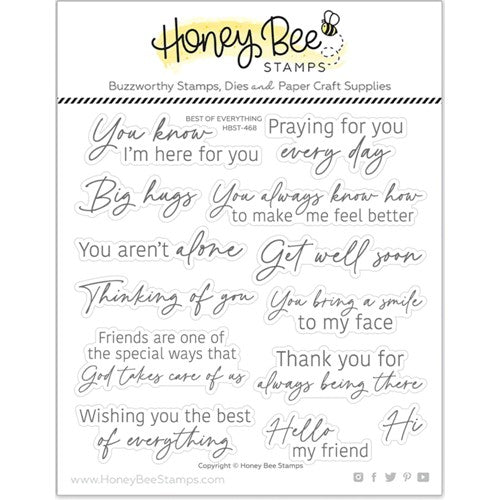 Honey Bee
STAMPS
Buzzworthy Stamps, Dies and Paper Craft Supplies
BEST OF EVERYTHING
HBST-468
You know
I'm here for you
Praying for you
every day
Big hugs
You always know how
to make me feel better
You aren't alone
Get well soon
Thinking of you
You bring a smile
to my face
Friends are one of
the special ways that
God takes care of us
Thank you for
always being there
Wishing you the best
of everything
Hello
my friend
Hi
Copyright © Honey Bee Stamps
www.HoneyBeeStamps.com